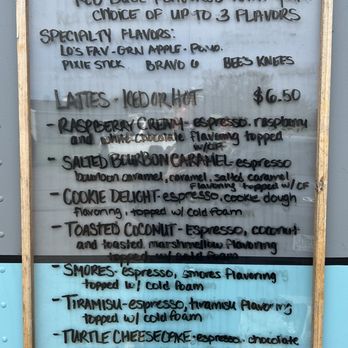 CHOICE OF UP TO 3 FLAVORS
SPECIALTY FLAVORS:
LO'S FAV - GRN APPLE -
PIXIE STICK BRAVO 6 BEE'S KNEES
LATTES - ICED OR HOT $6.50
- RASPBERRY CREAMY - espresso, raspberry
and white chocolate flavoring topped
w/CF
- SALTED BOURBON CARAMEL - espresso
bourbon caramel, caramel, salted caramel
flavoring topped w/CF
- COOKIE DELIGHT - espresso, cookie dough
flavoring, topped w/ cold foam
- TOASTED COCONUT - Espresso, coconut
and toasted marshmellow flavoring
topped w/ cold foam
- SMORES - espresso, smores flavoring
topped w/ cold foam
- TIRAMISU - espresso, tiramisu flavoring
topped w/ cold foam
- TURTLE CHEESECAKE - espresso, chocolate